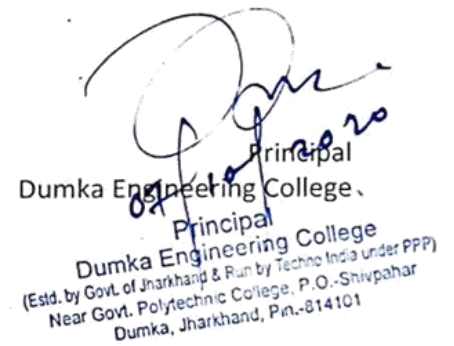 07/10/2020
Principal
Dumka Engineering College
Principal
Dumka Engineering College
(Estd. by Govt. of Jharkhand & Run by Techno India under PPP)
Near Govt. Polytechnic College, P.O.-Shivpahar
Dumka, Jharkhand, Pin.-814101